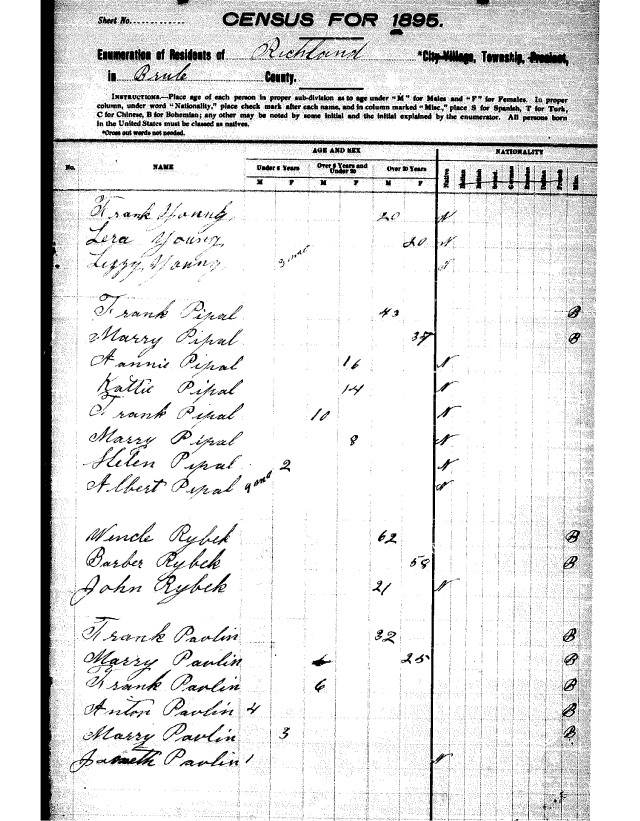 Sheet No.
CENSUS FOR 1895.
Enumeration of Residents of Richland *City Village, Township, Precinct,
in Brule County.
INSTRUCTIONS.—Place age of each person in proper sub-division as to age under "M" for Males and "F" for Females. In proper
column, under word "Nationality," place check mark after each name, and in column marked "Misc," place S for Spanish, T for Turk,
C for Chinese, B for Bohemian; any other may be noted by some initial and the initial explained by the enumerator. All persons born
in the United States must be classed as natives.
*Cross out words not needed.
AGE AND SEX NATIONALITY
No. NAME Under 6 Years Over 6 Years and Under 20 Over 20 Years Native
M F M F M F
Frank Young 20 N
Lera Young 20 N
Lizzy Young 3 mo
Frank Pipal 43 B
Marry Pipal 37 B
Annie Pipal 16 N
Kattie Pipal 14 N
Frank Pipal 10 N
Marry Pipal 8 N
Helen Pipal 2 N
Albert Pipal 9 mo N
Wencle Rybek 62 B
Barber Rybek 58 B
John Rybek 21 N
Frank Pavlin 32 B
Marry Pavlin 6 25 B
Frank Pavlin 6 B
Anton Pavlin 4 B
Marry Pavlin 3 B
Pavlin 1 N